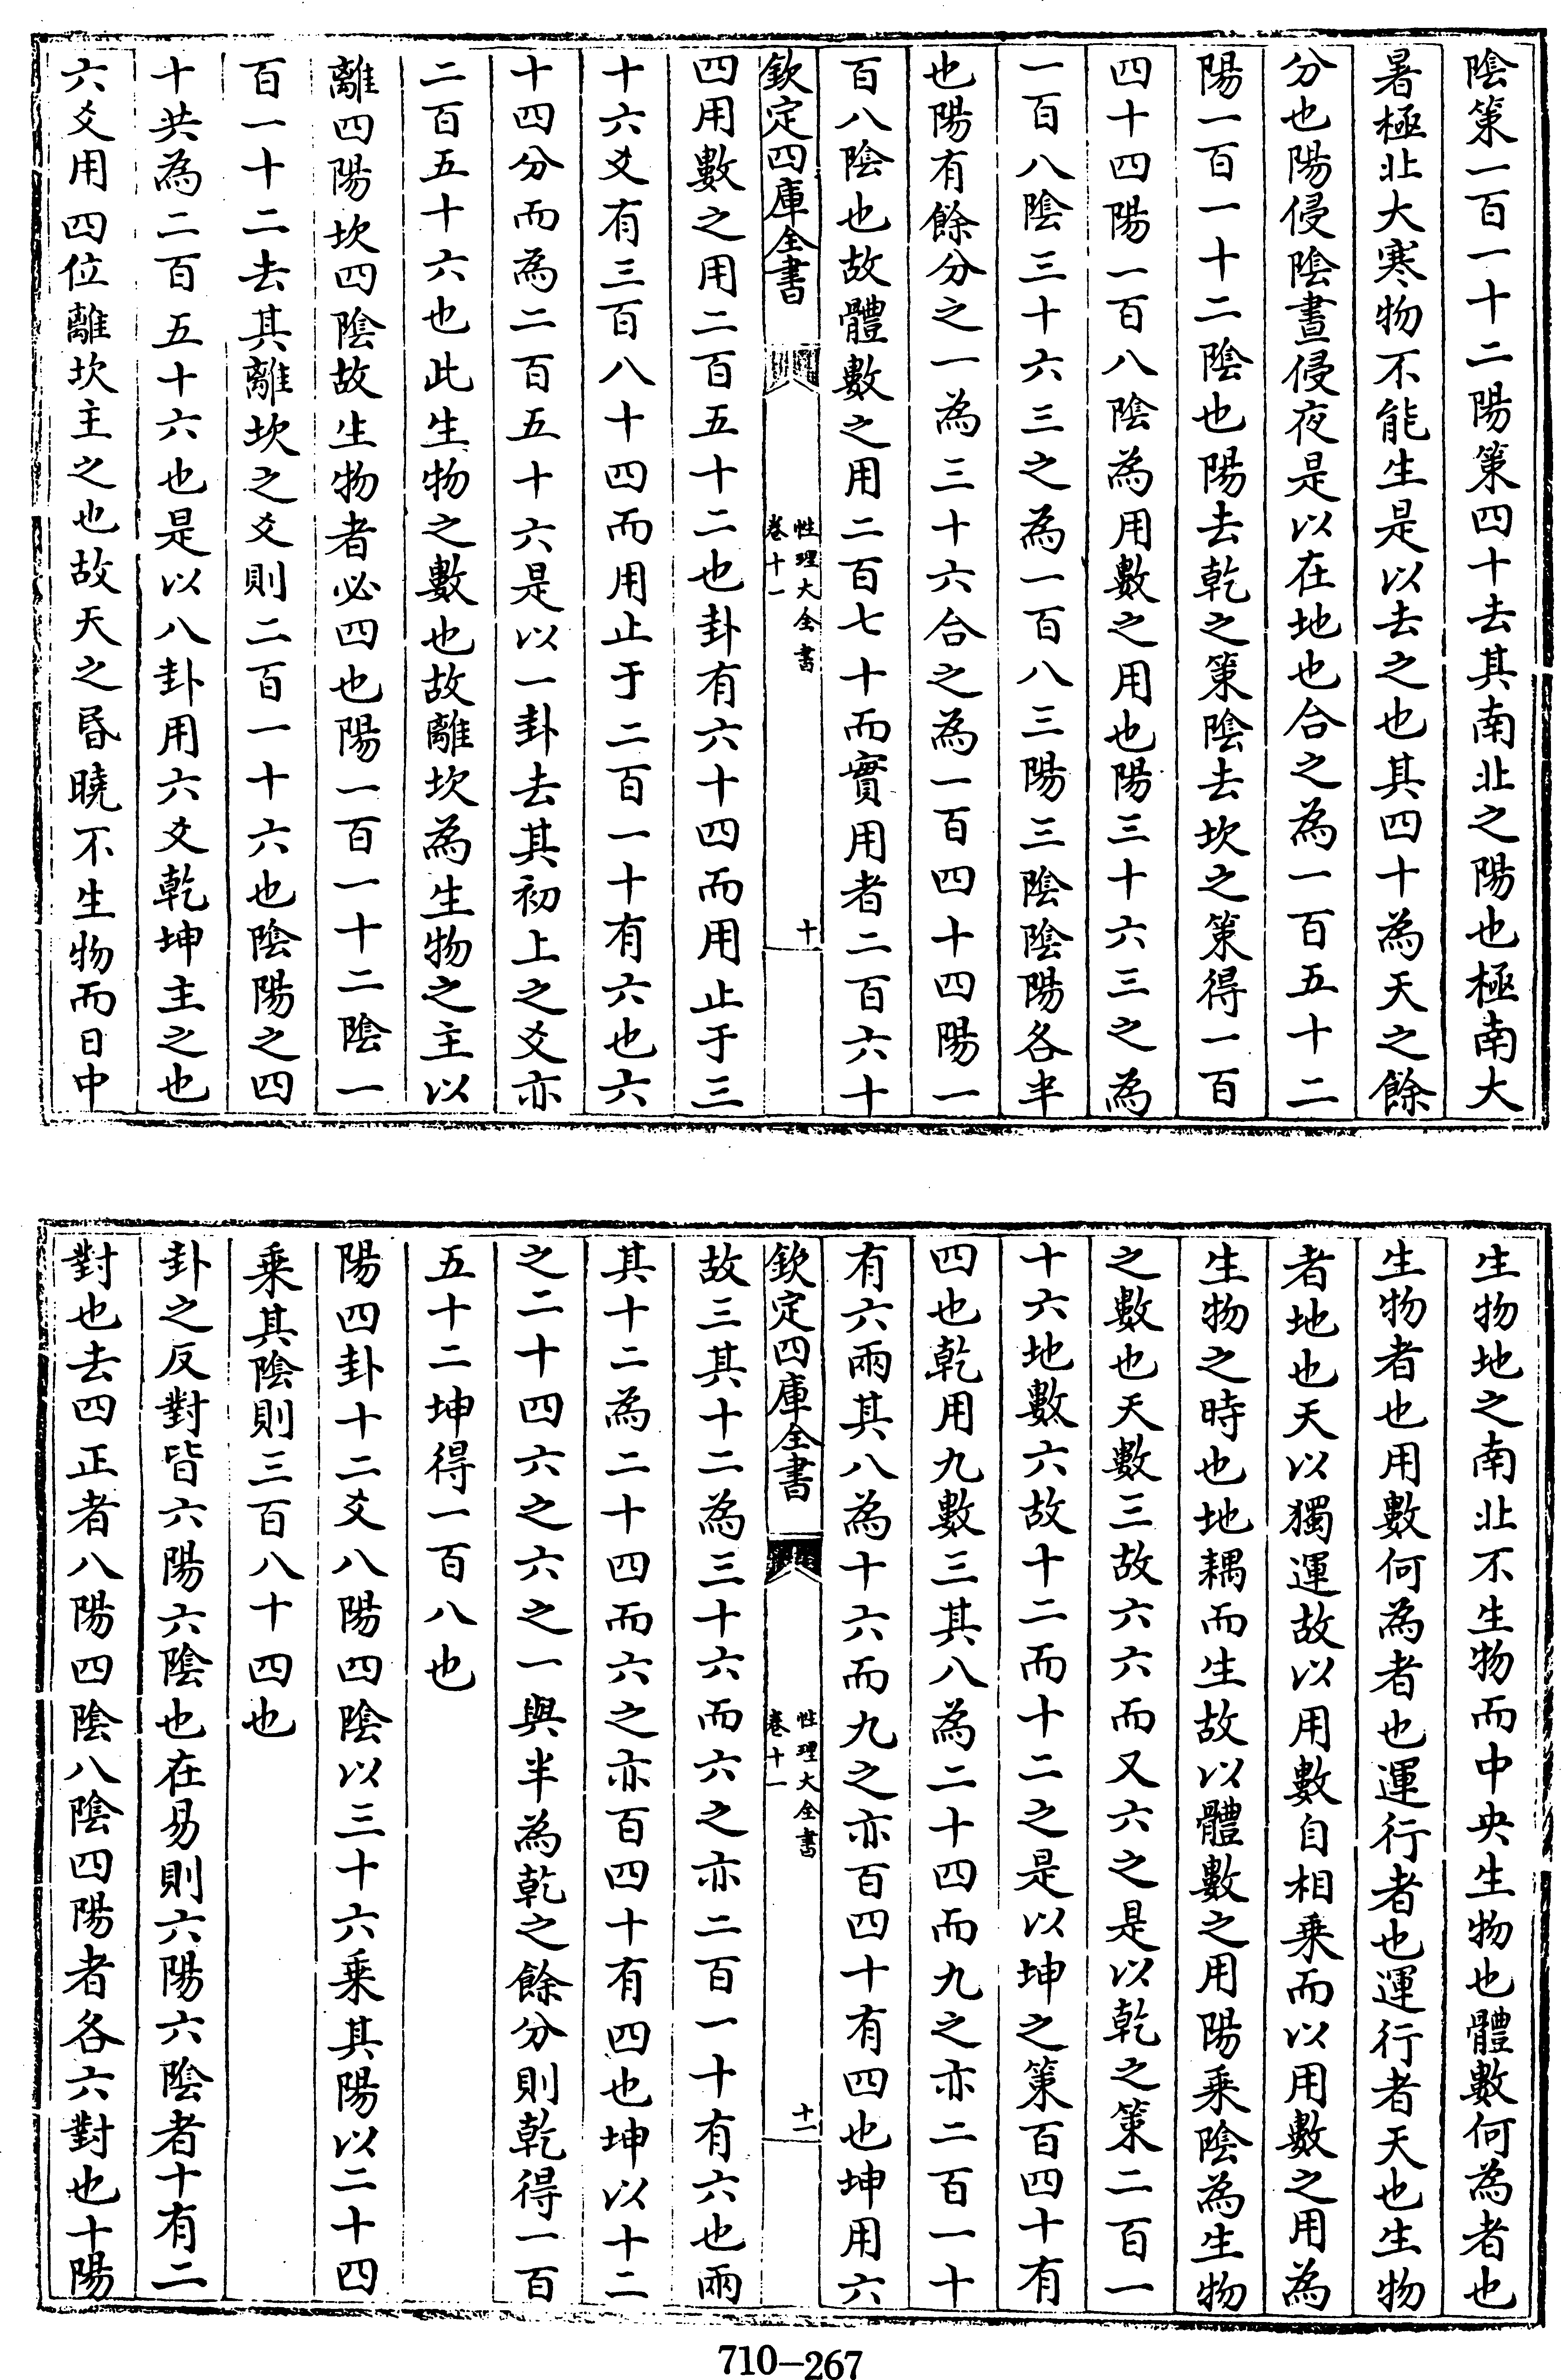 陰策一百一十二陽策四十去其南北之陽也極南大
暑極北大寒物不能生是以去之也其四十為天之餘
分也陽侵陰晝侵夜是以在地也合之為一百五十二
陽一百一十二陰也陽去乾之策陰去坎之策得一百
四十四陽一百八陰為用數之用也陽三十六三之為
一百八陰三十六三之為一百八三陽三陰陰陽各半
也陽有餘分之一為三十六合之為一百四十四陽一
百八陰也故體數之用二百七十而實用者二百六十
欽定四庫全書
性理大全書
卷十一
十
四用數之用二百五十二也卦有六十四而用止于三
十六爻有三百八十四而用止于二百一十有六也六
十四分而為二百五十六是以一卦去其初上之爻亦
二百五十六也此生物之數也故離坎為生物之主以
離四陽坎四陰故生物者必四也陽一百一十二陰一
百一十二去其離坎之爻則二百一十六也陰陽之四
十共為二百五十六也是以八卦用六爻乾坤主之也
六爻用四位離坎主之也故天之昏曉不生物而日中
生物地之南北不生物而中央生物也體數何為者也
生物者也用數何為者也運行者也運行者天也生物
者地也天以獨運故以用數自相乗而以用數之用為
生物之時也地耦而生故以體數之用陽乗陰為生物
之數也天數三故六六而又六之是以乾之策二百一
十六地數六故十二而十二之是以坤之策百四十有
四也乾用九數三其八為二十四而九之亦二百一十
有六兩其八為十六而九之亦百四十有四也坤用六
欽定四庫全書
性理大全書
卷十一
十一
故三其十二為三十六而六之亦二百一十有六也兩
其十二為二十四而六之亦百四十有四也坤以十二
之二十四六之六之一與半為乾之餘分則乾得一百
五十二坤得一百八也
陽四卦十二爻八陽四陰以三十六乗其陽以二十四
乗其陰則三百八十四也
卦之反對皆六陽六陰也在易則六陽六陰者十有二
對也去四正者八陽四陰八陰四陽者各六對也十陽
710-267